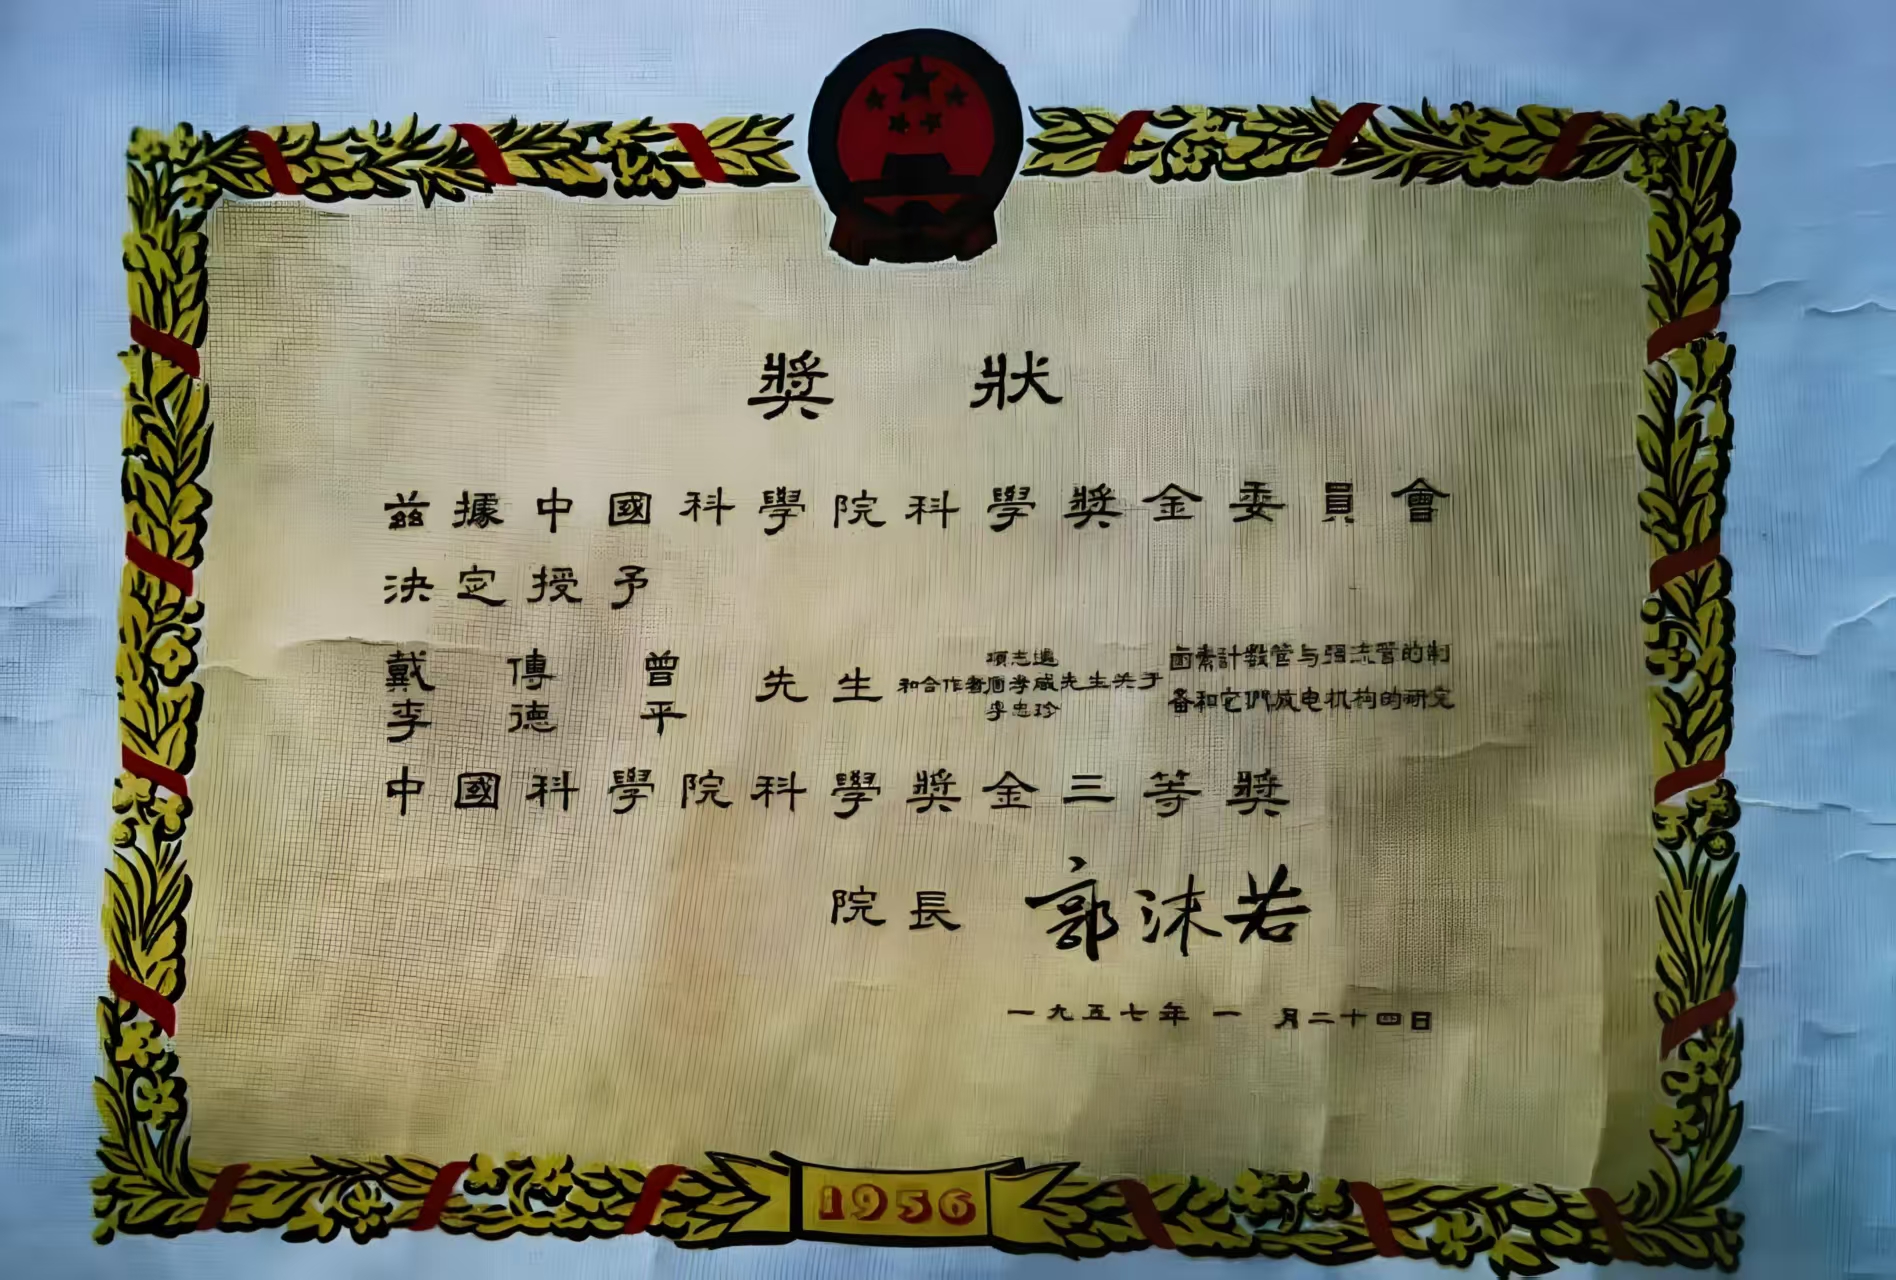 獎狀
茲據中國科學院科學獎金委員會
決定授予
戴傳曾
李德平
先生
和合作者
項志遴
李忠珍
先生关于
卤素計数管与强流管的制
备和它們放电机构的研究
中國科學院科學獎金三等獎
院長 郭沫若
一九五七年一月二十四日
1956